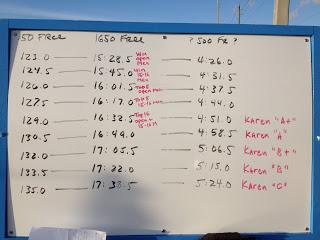 50 FREE 1650 FREE ? 500 FR ?
123.0 15:28.5 Win open Men 4:26.0
124.5 15:45.0 Win 15-16 Men 4:31.5
126.0 16:01.5 Top 8 open Men 4:37.5
127.5 16:17.0 Top 8 15-16 Men 4:44.0
129.0 16:32.5 Top 16 open + 15-16 M 4:51.0 Karen "A+"
130.5 16:49.0 4:58.5 Karen "A"
132.0 17:05.5 5:06.5 Karen "B+"
133.5 17:22.0 5:15.0 Karen "B"
135.0 17:38.5 5:24.0 Karen "C"